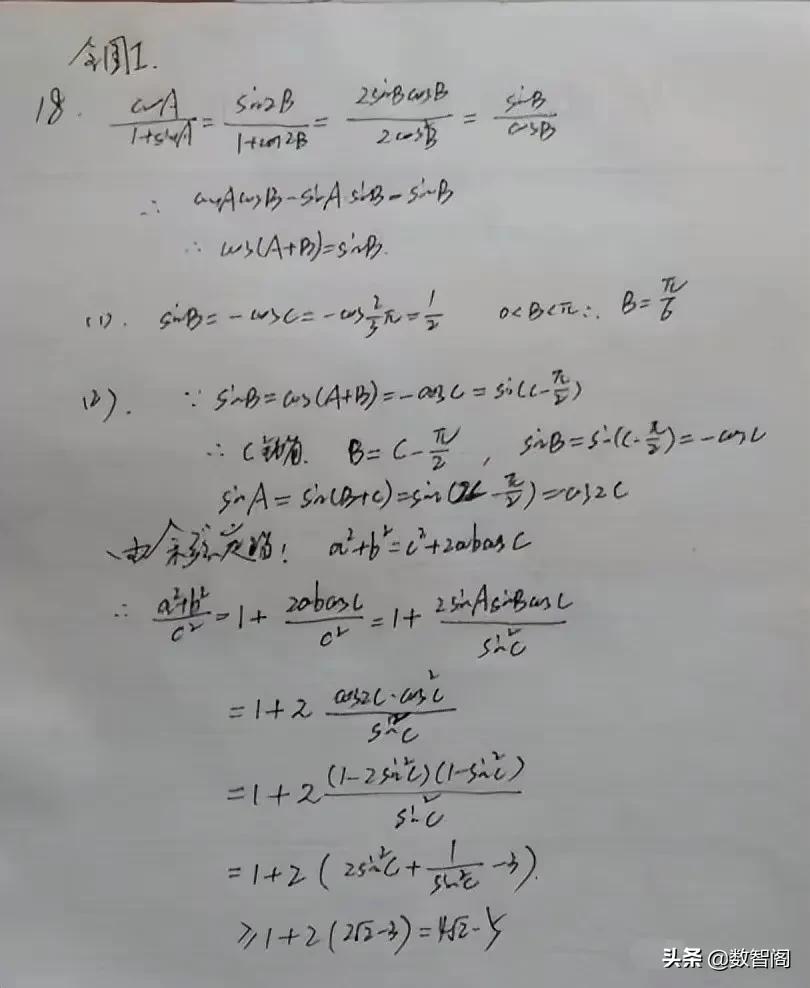 全国I.
18. cosA/(1+sinA) = sin2B/(1+cos2B) = 2sinBcosB/2cos²B = sinB/cosB
∴ cosAcosB-sinAsinB=sinB
∴ cos(A+B)=sinB.
(1). sinB=-cosC=-cos2/3π=1/2 0<B<π∴ B=π/6
(2). ∵ sinB=cos(A+B)=-cosC=sin(C-π/2)
∴ C钝角. B=C-π/2, sinB=sin(C-π/2)=-cosC
sinA=sin(B+C)=sin(2C-π/2)=-cos2C
由余弦定理: a²+b²=c²+2abcosC
∴ (a²+b²)/c²=1+2abcosC/c²=1+2sinAsinBcosC/sin²C
=1+2 cos2C·cos²C/sin²C
=1+2 (1-2sin²C)(1-sin²C)/sin²C
=1+2(2sin²C+1/sin²C-3).
≥1+2(2√2-3)=4√2-5
头条 @数智阁